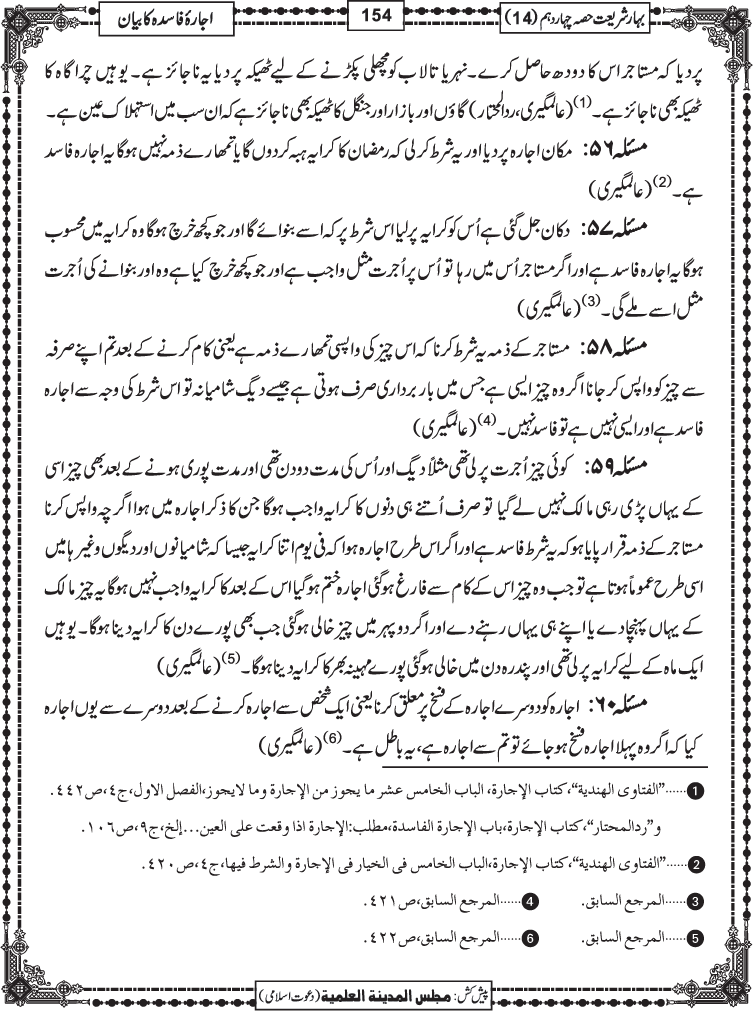 بہار شریعت حصہ چہار دہم (14)
154
اجارۂ فاسدہ کا بیان
پر دیا کہ مستاجر اس کا دودھ حاصل کرے۔ نہر یا تالاب کو مچھلی پکڑنے کے لیے ٹھیکہ پر دیا یہ ناجائز ہے۔ یوہیں چراگاہ کا
ٹھیکہ بھی ناجائز ہے۔(1) (عالمگیری، ردالمحتار) گاؤں اور بازار اور جنگل کا ٹھیکہ بھی ناجائز ہے کہ ان سب میں استہلاک عین ہے۔
مسئلہ ۵۶: مکان اجارہ پر دیا اور یہ شرط کرلی کہ رمضان کا کرایہ ہبہ کردوں گا یا تمھارے ذمہ نہیں ہوگا یہ اجارہ فاسد
ہے۔(2) (عالمگیری)
مسئلہ ۵۷: دکان جل گئی ہے اُس کو کرایہ پر لیا اس شرط پر کہ اسے بنوائے گا اور جو کچھ خرچ ہوگا وہ کرایہ میں محسوب
ہوگا یہ اجارہ فاسد ہے اور اگر مستاجر اُس میں رہا تو اُس پر اُجرت مثل واجب ہے اور جو کچھ خرچ کیا ہے وہ اور بنوانے کی اُجرت
مثل اسے ملے گی۔(3) (عالمگیری)
مسئلہ ۵۸: مستاجر کے ذمہ یہ شرط کرنا کہ اس چیز کی واپسی تمھارے ذمہ ہے یعنی کام کرنے کے بعد تم اپنے صرفہ
سے چیز کو واپس کر جانا اگر وہ چیز ایسی ہے جس میں بار برداری صرف ہوتی ہے جیسے دیگ شامیانہ تو اس شرط کی وجہ سے اجارہ
فاسد ہے اور ایسی نہیں ہے تو فاسد نہیں۔(4) (عالمگیری)
مسئلہ ۵۹: کوئی چیز اُجرت پر لی تھی مثلاً دیگ اور اُس کی مدت دو دن تھی اور مدت پوری ہونے کے بعد بھی چیز اسی
کے یہاں پڑی رہی مالک نہیں لے گیا تو صرف اُتنے ہی دنوں کا کرایہ واجب ہوگا جن کا ذکر اجارہ میں ہوا اگرچہ واپس کرنا
مستاجر کے ذمہ قرار پایا ہو کہ یہ شرط فاسد ہے اور اگر اس طرح اجارہ ہوا کہ فی یوم اتنا کرایہ جیسا کہ شامیانوں اور دیگوں وغیرہا میں
اسی طرح عموماً ہوتا ہے تو جب وہ چیز اس کے کام سے فارغ ہوگئی اجارہ ختم ہوگیا اس کے بعد کا کرایہ واجب نہیں ہوگا یہ چیز مالک
کے یہاں پہنچا دے یا اپنے ہی یہاں رہنے دے اور اگر دوپہر میں چیز خالی ہوگئی جب بھی پورے دن کا کرایہ دینا ہوگا۔ یوہیں
ایک ماہ کے لیے کرایہ پر لی تھی اور پندرہ دن میں خالی ہوگئی پورے مہینہ بھر کا کرایہ دینا ہوگا۔(5) (عالمگیری)
مسئلہ ۶۰: اجارہ کو دوسرے اجارہ کے فسخ پر معلق کرنا یعنی ایک شخص سے اجارہ کرنے کے بعد دوسرے سے یوں اجارہ
کیا کہ اگر وہ پہلا اجارہ فسخ ہو جائے تو تم سے اجارہ ہے، یہ باطل ہے۔(6) (عالمگیری)
1......"الفتاوی الهندية"، كتاب الإجارة، الباب الخامس عشر ما يجوز من الإجارة وما لايجوز،الفصل الاول،ج٤،ص٤٤٢.
و"ردالمحتار"، كتاب الإجارة،باب الإجارة الفاسدة،مطلب:الإجارة اذا وقعت على العين...إلخ،ج٩،ص١٠٦.
2......"الفتاوی الهندية"، كتاب الإجارة،الباب الخامس فى الخيار فى الإجارة والشرط فيها،ج٤،ص٤٢٠.
3......المرجع السابق. 4......المرجع السابق،ص٤٢١.
5......المرجع السابق. 6......المرجع السابق،ص٤٢٢.
پیش کش: مجلس المدينة العلمية (دعوت اسلامی)